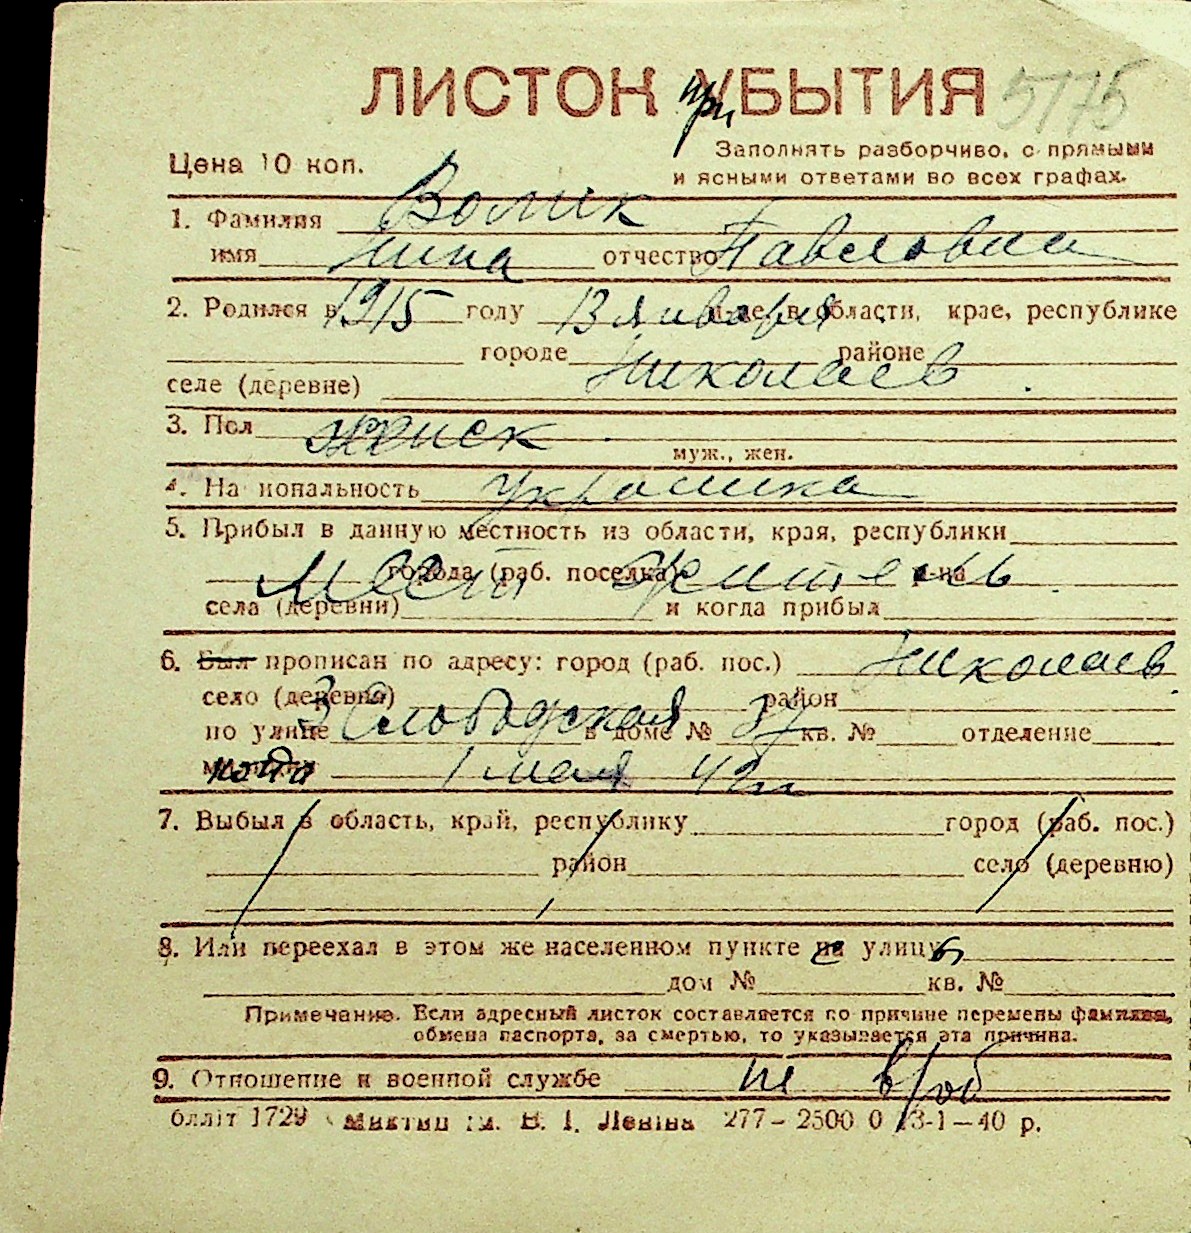 ЛИСТОК УБЫТИЯ 5175
при
Цена 10 коп.
Заполнять разборчиво, с прямыми
и ясными ответами во всех графах.
1. Фамилия Волик
имя Нина отчество Павловна
2. Родился в 1915 году 13 января в области, крае, республике
городе районе
селе (деревне) Николаев
3. Пол женск
муж., жен.
4. Национальность украинка
5. Прибыл в данную местность из области, края, республики
города (раб. поселка) на
Мест житель
села (деревни) и когда прибыл
6. Был прописан по адресу: город (раб. пос.) Николаев
село (деревня) район
по улице 3 Слободская в доме № кв. № отделение
когда 1 мая 42г
7. Выбыл в область, край, республику город (раб. пос.)
район село (деревню)
8. Или переехал в этом же населенном пункте на улицу
дом № кв. №
Примечание. Если адресный листок составляется по причине перемены фамилии,
обмена паспорта, за смертью, то указывается эта причина.
9. Отношение к военной службе не в/об
блліт 1729 ім. В. І. Леніна 277–2500 0 13-1–40 р.